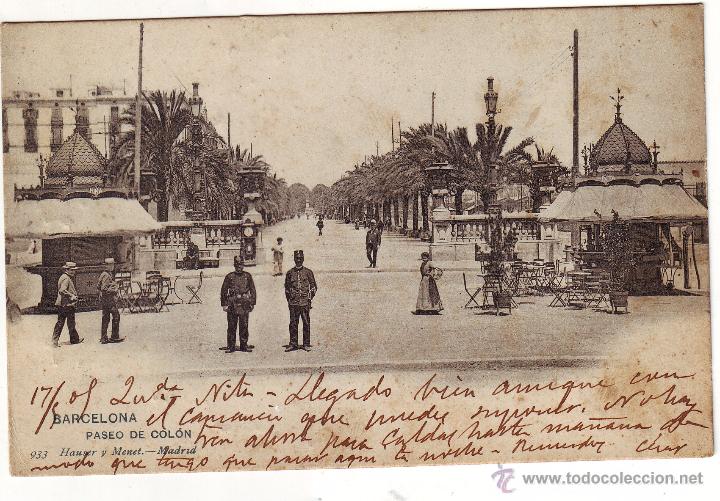 17/5 05 Querida Niti - Llegado bien aunque con
BARCELONA
el cansancio que puedes suponer. No hay
PASEO DE COLÓN
tren ahora para Caldas hasta mañana de
933 Hauser y Menet.—Madrid
modo que tengo que pasar aqui la noche - Recuerdos
todocoleccion.net